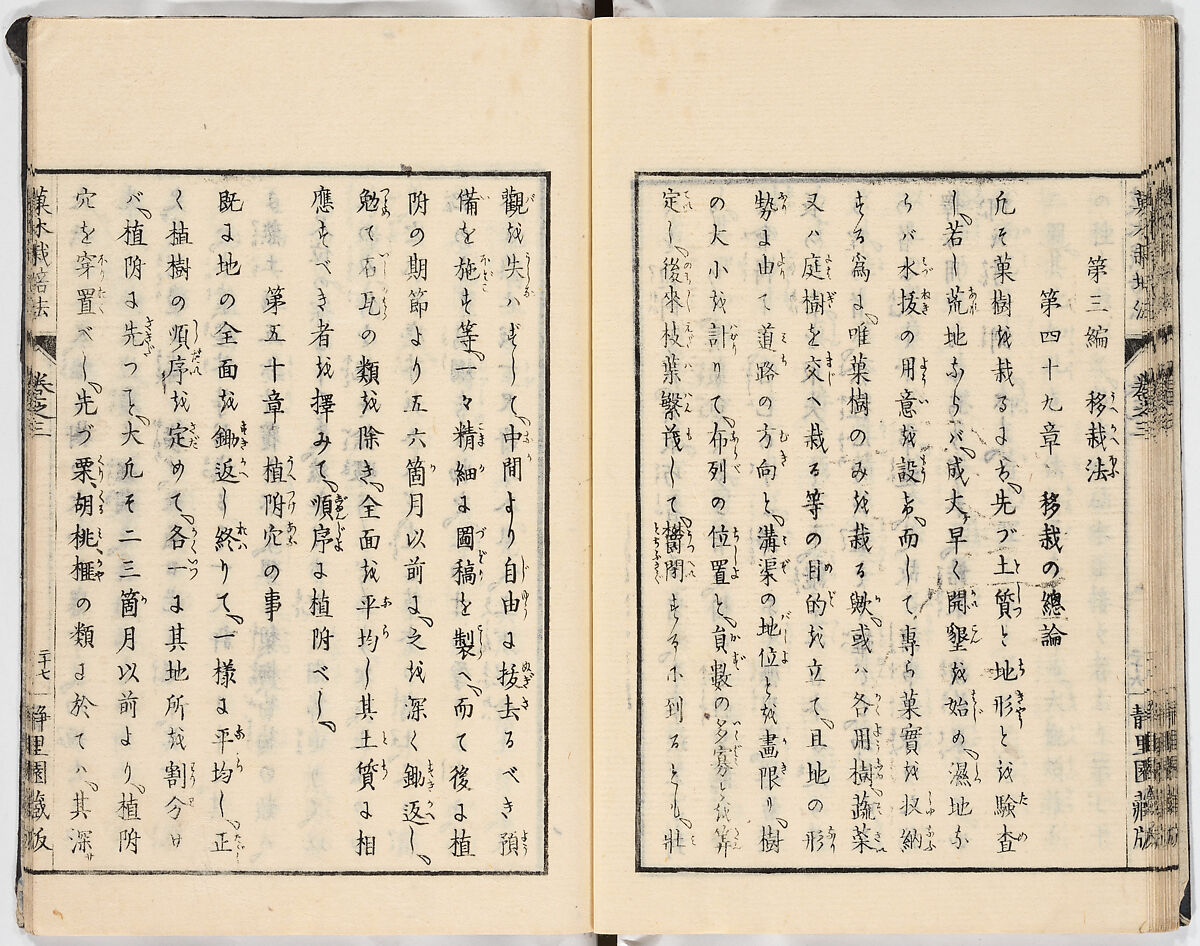 菓木栽培法 卷之三 静里園藏版
第三編 移栽法
第四十九章 移栽の總論
凡そ菓樹を栽るにハ、先づ土質と地形とを験査
し、若し荒地ならバ、成丈早く開墾を始め、濕地な
らバ水抜の用意を設け、而して専ら菓實を収納
する為に、唯菓樹のみを栽る歟、或ハ各用樹蔬菜
又ハ庭樹を交へ栽る等の目的を立て、且地の形
勢に由て道路の方向と、溝渠の地位とを畫限り、樹
の大小を計りて、布列の位置と、員數の多寡とを算
定し、後來枝葉繁茂して、欝閉するに到るとも、壯
觀を失ハずして、中間より自由に抜去るべき預
備を施す等、一々精細に圖稿を製へ、而て後に植
附の期節より五六箇月以前に、之を深く鋤返し、
勉て石瓦の類を除き、全面を平均し其土質に相
應すべき者を擇みて、順序に植附べし、
第五十章 植附穴の事
既に地の全面を鋤返し終りて、一様に平均し、正
く植樹の順序を定めて、各一に其地所を割分け
バ、植附に先つこと、大凡そ二三箇月以前より、植附
穴を穿置べし、先づ栗、胡桃、榧の類に於てハ、其深サ
菓木栽培法 卷之三 二十七 静里園藏版